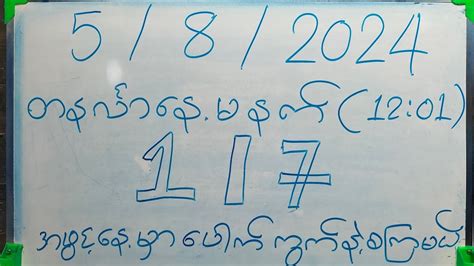 5 / 8 / 2024
တနင်္လာနေ့ မနက် (12:01)
1 / 7
အဖွင့်နေ့မှာ ပေါက်ကွက်နဲ့ စကြမယ်